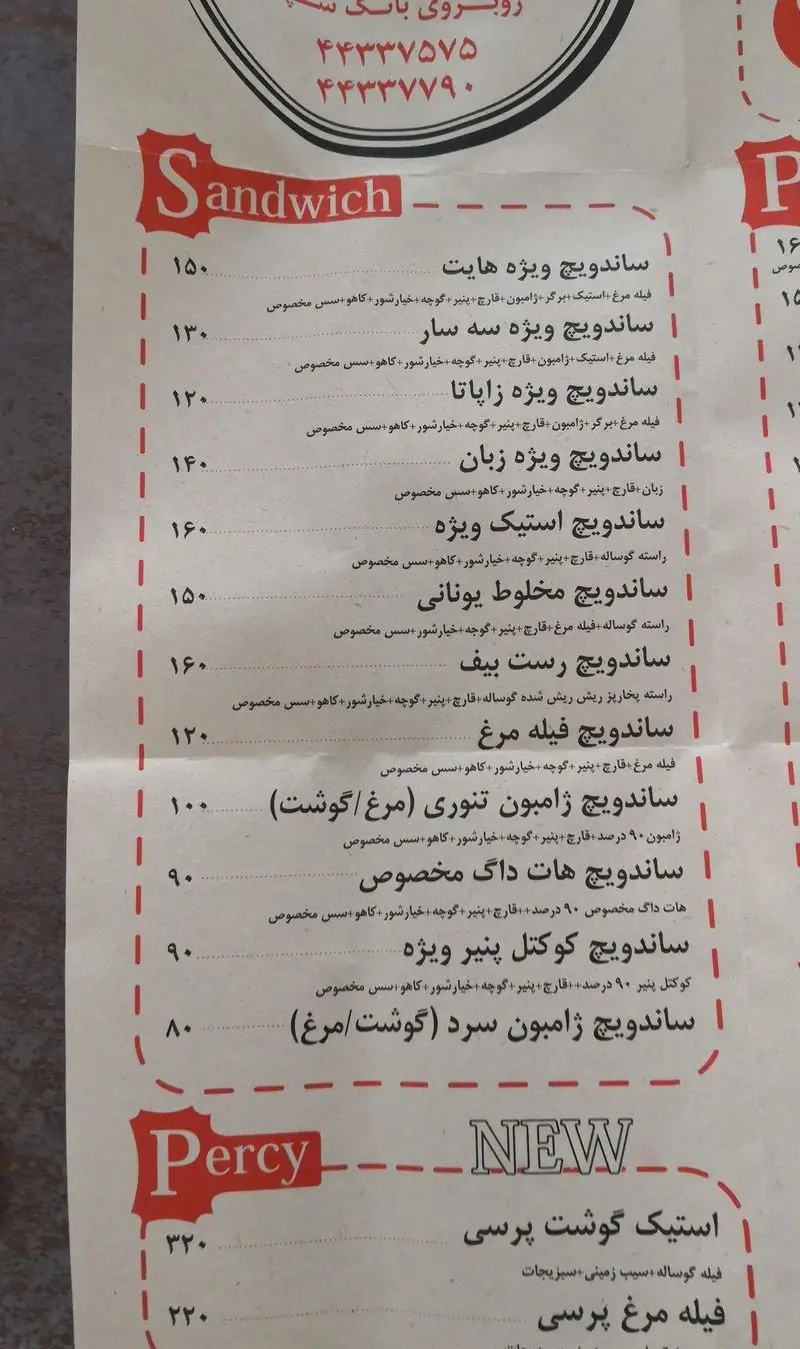 روبروی بانک
۴۴۳۳۷۵۷۵
۴۴۳۳۷۷۹۰
Sandwich
ساندویچ ویژه هایت ۱۵۰
فیله مرغ+استیک+برگر+ژامبون+قارچ+پنیر+گوجه+خیارشور+کاهو+سس مخصوص
ساندویچ ویژه سه سار ۱۳۰
فیله مرغ+استیک+ژامبون+قارچ+پنیر+گوجه+خیارشور+کاهو+سس مخصوص
ساندویچ ویژه زاپاتا ۱۲۰
فیله مرغ+برگر+ژامبون+قارچ+پنیر+گوچه+خیارشور+کاهو+سس مخصوص
ساندویچ ویژه زبان ۱۴۰
زبان+قارچ+پنیر+گوچه+خیارشور+کاهو+سس مخصوص
ساندویچ استیک ویژه ۱۶۰
راسته گوساله+قارچ+پنیر+گوچه+خیارشور+کاهو+سس مخصوص
ساندویچ مخلوط یونانی ۱۵۰
راسته گوساله+فیله مرغ+قارچ+پنیر+گوجه+خیارشور+کاهو+سس مخصوص
ساندویچ رست بیف ۱۶۰
راسته پخارپز ریش ریش شده گوساله+قارچ+پنیر+گوچه+خیارشور+کاهو+سس مخصوص
ساندویچ فیله مرغ ۱۲۰
فیله مرغ+قارچ+پنیر+گوجه+خیارشور+کاهو+سس مخصوص
ساندویچ ژامبون تنوری (مرغ/گوشت) ۱۰۰
ژامبون ۹۰ درصد+قارچ+پنیر+گوچه+خیارشور+کاهو+سس مخصوص
ساندویچ هات داگ مخصوص ۹۰
هات داگ مخصوص ۹۰ درصد++قارچ+پنیر+گوچه+خیارشور+کاهو+سس مخصوص
ساندویچ کوکتل پنیر ویژه ۹۰
کوکتل پنیر ۹۰ درصد++قارچ+پنیر+گوچه+خیارشور+کاهو+سس مخصوص
ساندویچ ژامبون سرد (گوشت/مرغ) ۸۰
Percy
NEW
استیک گوشت پرسی ۳۲۰
فیله گوساله+سیب زمینی+سبزیجات
فیله مرغ پرسی ۲۲۰
P